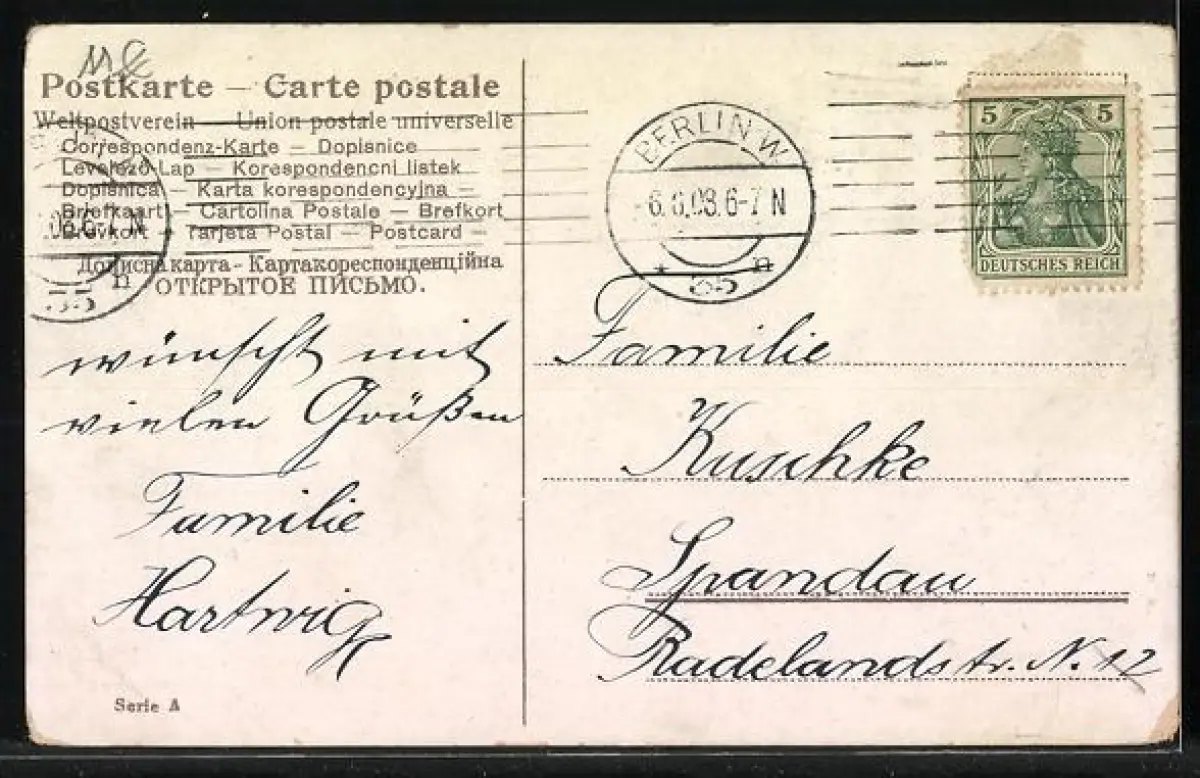 Postkarte — Carte postale
Weltpostverein — Union postale universelle
Correspondenz-Karte — Dopisnice
Levelező-Lap — Korespondencni listek
Dopisnica — Karta korespondencyjna —
Briefkaart — Cartolina Postale — Brefkort
Brevkort — Tarjeta Postal — Postcard —
Дописна карта - Картакореспонденційна
ОТКРЫТОЕ ПИСЬМО.
wünscht mit
vielen Grüßen
Familie
Hartwig
Serie A
BERLIN W
6.6.08.6-7 N
* 35 n
5 5
DEUTSCHES REICH
Familie
Kuschke
Spandau
Radelandstr. N. 12